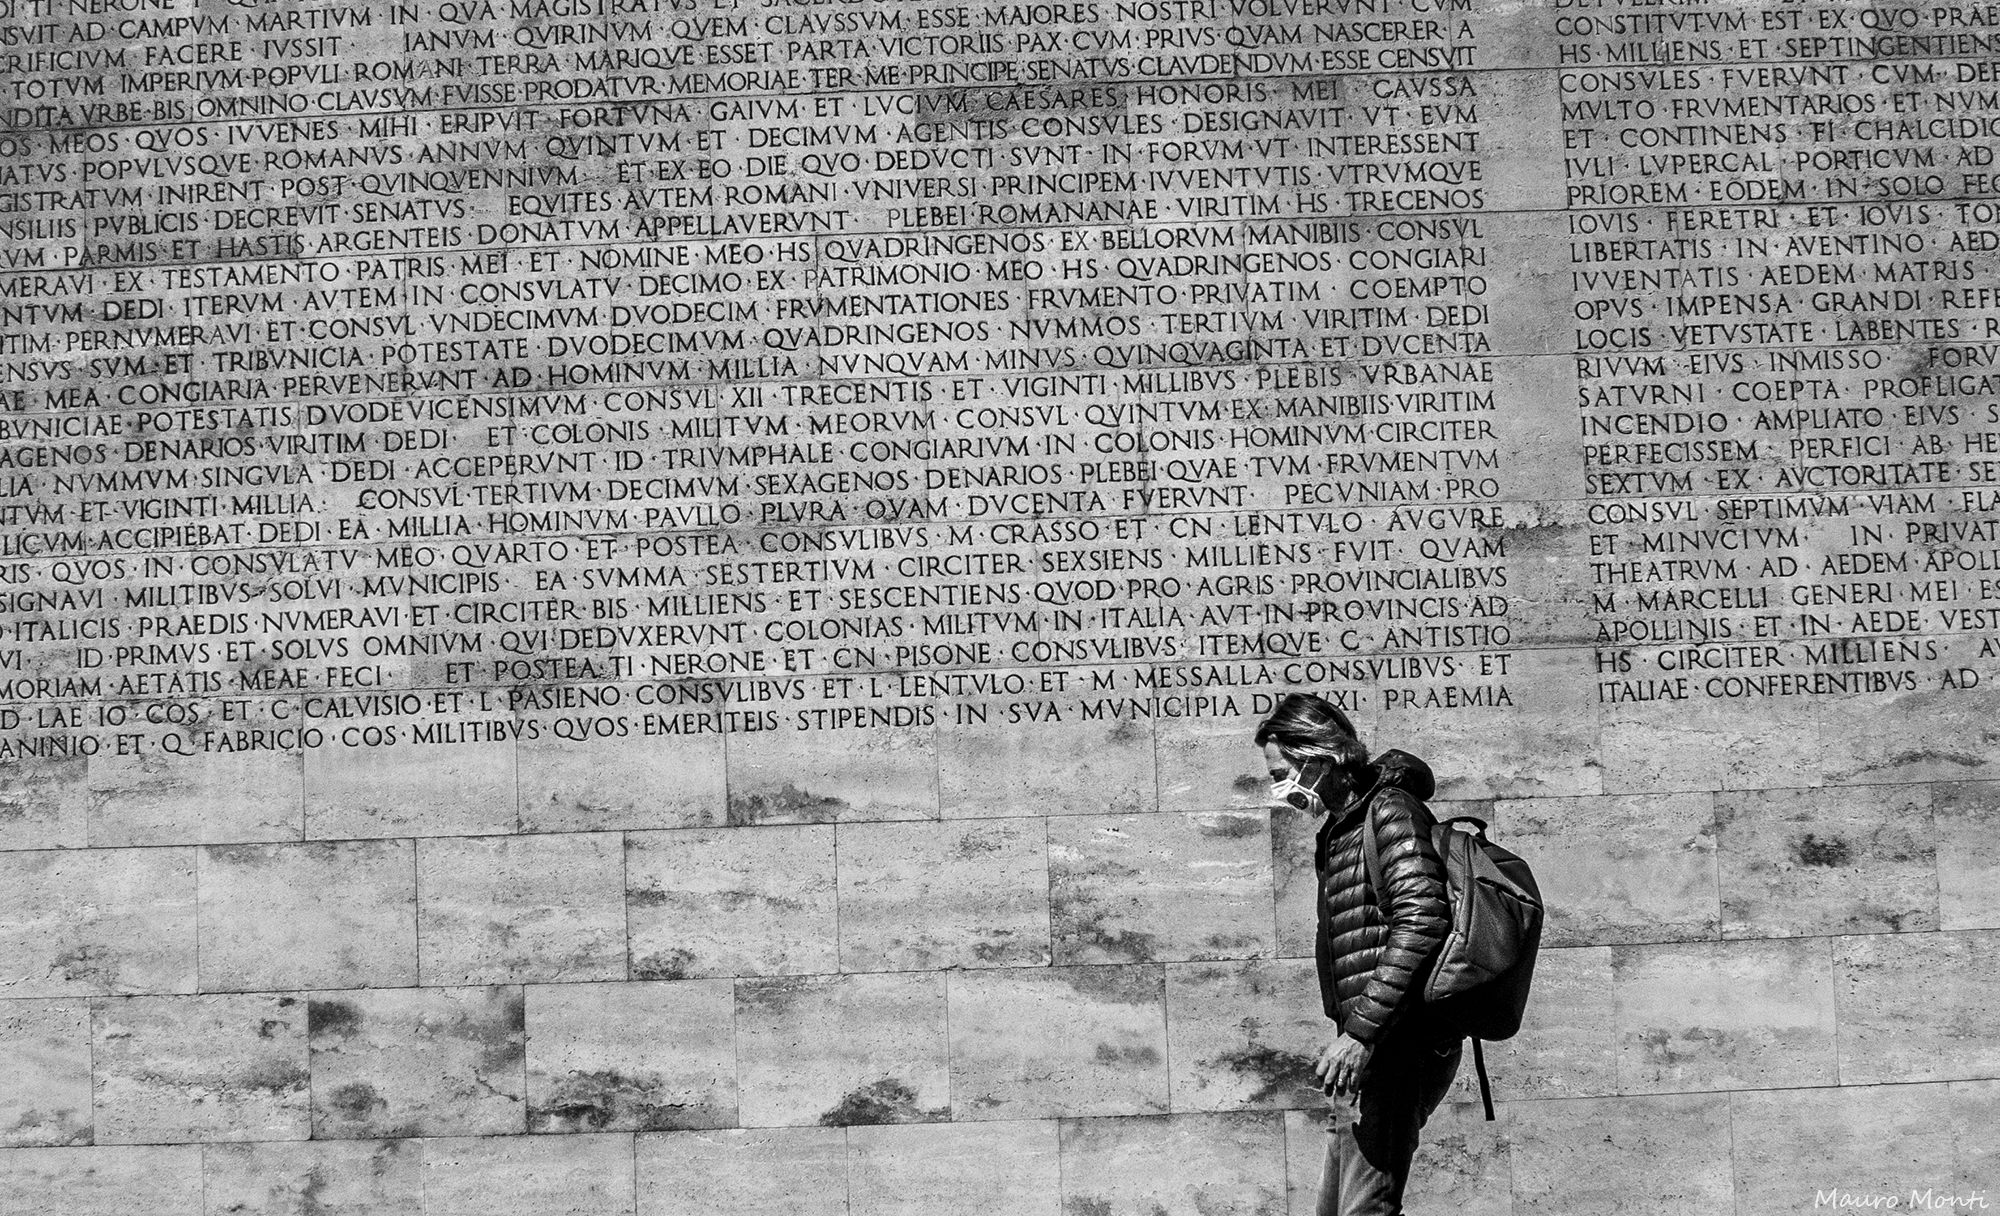 DI · TI · NERONE
NSVIT · AD · CAMPVM · MARTIVM · IN · QVA · MAGISTRATVS · ET
CRIFICIVM · FACERE · IVSSIT · IANVM · QVIRINVM · QVEM · CLAVSSVM · ESSE · MAIORES · NOSTRI · VOLVERVNT · CVM
· TOTVM · IMPERIVM · POPVLI · ROMANI · TERRA · MARIQVE · ESSET · PARTA · VICTORIIS · PAX · CVM · PRIVS · QVAM · NASCERER · A
NDITA · VRBE · BIS · OMNINO · CLAVSVM · FVISSE · PRODATVR · MEMORIAE · TER · ME · PRINCIPE · SENATVS · CLAVDENDVM · ESSE · CENSVIT
OS · MEOS · QVOS · IVVENES · MIHI · ERIPVIT · FORTVNA · GAIVM · ET · LVCIVM · CAESARES · HONORIS · MEI · CAVSSA
NATVS · POPVLVSQVE · ROMANVS · ANNVM · QVINTVM · ET · DECIMVM · AGENTIS · CONSVLES · DESIGNAVIT · VT · EVM
GISTRATVM · INIRENT · POST · QVINQVENNIVM · ET · EX · EO · DIE · QVO · DEDVCTI · SVNT · IN · FORVM · VT · INTERESSENT
NSILIIS · PVBLICIS · DECREVIT · SENATVS · EQVITES · AVTEM · ROMANI · VNIVERSI · PRINCIPEM · IVVENTVTIS · VTRVMQVE
RVM · PARMIS · ET · HASTIS · ARGENTEIS · DONATVM · APPELLAVERVNT · PLEBEI · ROMANANAE · VIRITIM · HS · TRECENOS
MERAVI · EX · TESTAMENTO · PATRIS · MEI · ET · NOMINE · MEO · HS · QVADRINGENOS · EX · BELLORVM · MANIBIIS · CONSVL
NTVM · DEDI · ITERVM · AVTEM · IN · CONSVLATV · DECIMO · EX · PATRIMONIO · MEO · HS · QVADRINGENOS · CONGIARI
ITIM · PERNVMERAVI · ET · CONSVL · VNDECIMVM · DVODECIM · FRVMENTATIONES · FRVMENTO · PRIVATIM · COEMPTO
ENSVS · SVM · ET · TRIBVNICIA · POTESTATE · DVODECIMVM · QVADRINGENOS · NVMMOS · TERTIVM · VIRITIM · DEDI
AE · MEA · CONGIARIA · PERVENERVNT · AD · HOMINVM · MILLIA · NVNQVAM · MINVS · QVINQVAGINTA · ET · DVCENTA
BVNICIAE · POTESTATIS · DVODEVICENSIMVM · CONSVL · XII · TRECENTIS · ET · VIGINTI · MILLIBVS · PLEBIS · VRBANAE
AGENOS · DENARIOS · VIRITIM · DEDI · ET · COLONIS · MILITVM · MEORVM · CONSVL · QVINTVM · EX · MANIBIIS · VIRITIM
LIA · NVMMVM · SINGVLA · DEDI · ACCEPERVNT · ID · TRIVMPHALE · CONGIARIVM · IN · COLONIS · HOMINVM · CIRCITER
NTVM · ET · VIGINTI · MILLIA · CONSVL · TERTIVM · DECIMVM · SEXAGENOS · DENARIOS · PLEBEI · QVAE · TVM · FRVMENTVM
LICVM · ACCIPIEBAT · DEDI · EA · MILLIA · HOMINVM · PAVLLO · PLVRA · QVAM · DVCENTA · FVERVNT · PECVNIAM · PRO
RIS · QVOS · IN · CONSVLATV · MEO · QVARTO · ET · POSTEA · CONSVLIBVS · M · CRASSO · ET · CN · LENTVLO · AVGVRE
SIGNAVI · MILITIBVS · SOLVI · MVNICIPIS · EA · SVMMA · SESTERTIVM · CIRCITER · SEXSIENS · MILLIENS · FVIT · QVAM
O · ITALICIS · PRAEDIS · NVMERAVI · ET · CIRCITER · BIS · MILLIENS · ET · SESCENTIENS · QVOD · PRO · AGRIS · PROVINCIALIBVS
VI · ID · PRIMVS · ET · SOLVS · OMNIVM · QVI · DEDVXERVNT · COLONIAS · MILITVM · IN · ITALIA · AVT · IN · PROVINCIS · AD
MORIAM · AETATIS · MEAE · FECI · ET · POSTEA · TI · NERONE · ET · CN · PISONE · CONSVLIBVS · ITEMQVE · C · ANTISTIO
D · LAE IO · COS · ET · C · CALVISIO · ET · L · PASIENO · CONSVLIBVS · ET · L · LENTVLO · ET · M · MESSALLA · CONSVLIBVS · ET
ANINIO · ET · Q · FABRICIO · COS · MILITIBVS · QVOS · EMERITEIS · STIPENDIS · IN · SVA · MVNICIPIA · DE VXI · PRAEMIA
CONSTITVTVM · EST · EX · QVO · PRAE
HS · MILLIENS · ET · SEPTINGENTIENS
CONSVLES · FVERVNT · CVM · DEF
MVLTO · FRVMENTARIOS · ET · NVM
ET · CONTINENS · EI · CHALCIDIC
IVLI · LVPERCAL · PORTICVM · AD
PRIOREM · EODEM · IN · SOLO · FEC
IOVIS · FERETRI · ET · IOVIS · TON
LIBERTATIS · IN · AVENTINO · AED
IVVENTATIS · AEDEM · MATRIS ·
OPVS · IMPENSA · GRANDI · REFE
LOCIS · VETVSTATE · LABENTES · R
RIVVM · EIVS · INMISSO · FORV
SATVRNI · COEPTA · PROFLIGAT
INCENDIO · AMPLIATO · EIVS · S
PERFECISSEM · PERFICI · AB · HE
SEXTVM · EX · AVCTORITATE · SE
CONSVL · SEPTIMVM · VIAM · FLA
ET · MINVCIVM · IN · PRIVAT
THEATRVM · AD · AEDEM · APOLL
M · MARCELLI · GENERI · MEI · ES
APOLLINIS · ET · IN · AEDE · VEST
HS · CIRCITER · MILLIENS · A
ITALIAE · CONFERENTIBVS · AD ·
Mauro Monti